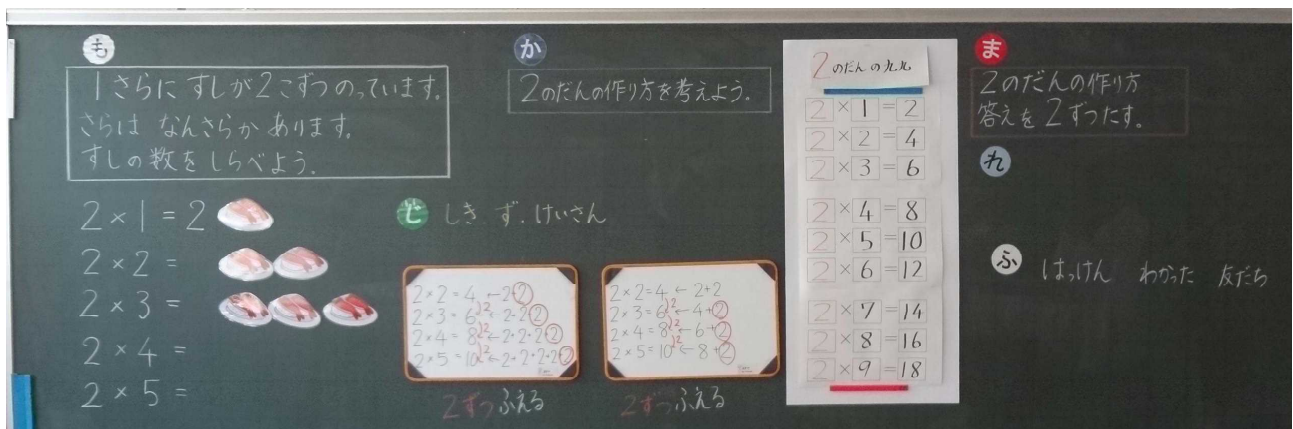 も
1さらに すしが2こずつのっています。
さらは なんさらか あります。
すしの数を しらべよう。
2×1=2
2×2=
2×3=
2×4=
2×5=
か
2のだんの作り方を考えよう。
じ しき ず.けいさん
2×2=4 ←2+2
2×3=6 ←2+2+2
2×4=8 ←2+2+2+2
2×5=10 ←2+2+2+2+2
)2
)2
)2
2ずつふえる
2×2=4 ←2+2
2×3=6 ←4+2
2×4=8 ←6+2
2×5=10 ←8+2
)2
)2
)2
2ずつふえる
2のだんの九九
2×1=2
2×2=4
2×3=6
2×4=8
2×5=10
2×6=12
2×7=14
2×8=16
2×9=18
ま
2のだんの作り方
答えを2ずつたす。
れ
ふ はっけん わかった 友だち